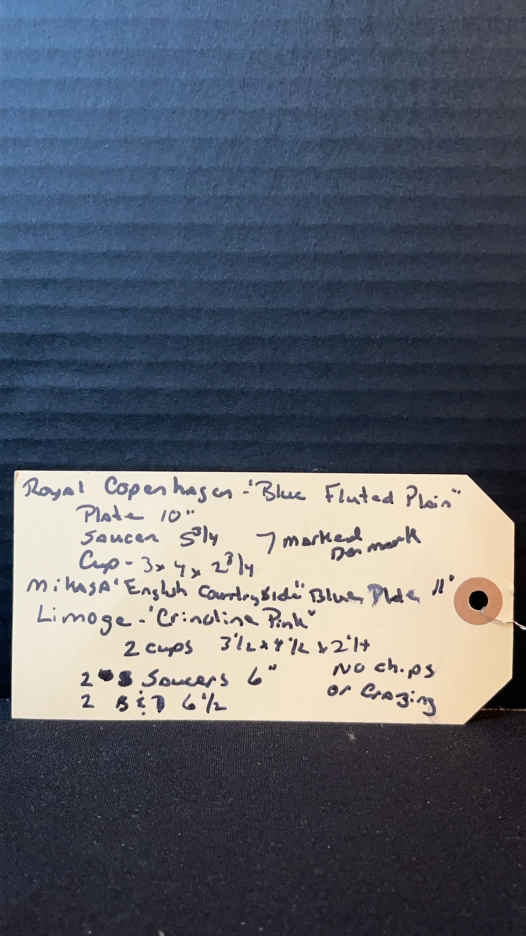 Royal Copenhagen - "Blue Fluted Plain"
Plate 10"
Saucer 5 3/4 7 marked Denmark
Cup - 3 x 4 x 2 3/4
Mikasa "English Countryside" Blue Plate 11"
Limoge - "Crinoline Pink"
2 cups 3 1/2 x 4 1/2 x 2 1/4
2 Saucers 6" No chips
2 B & 6 1/2 or Crazing